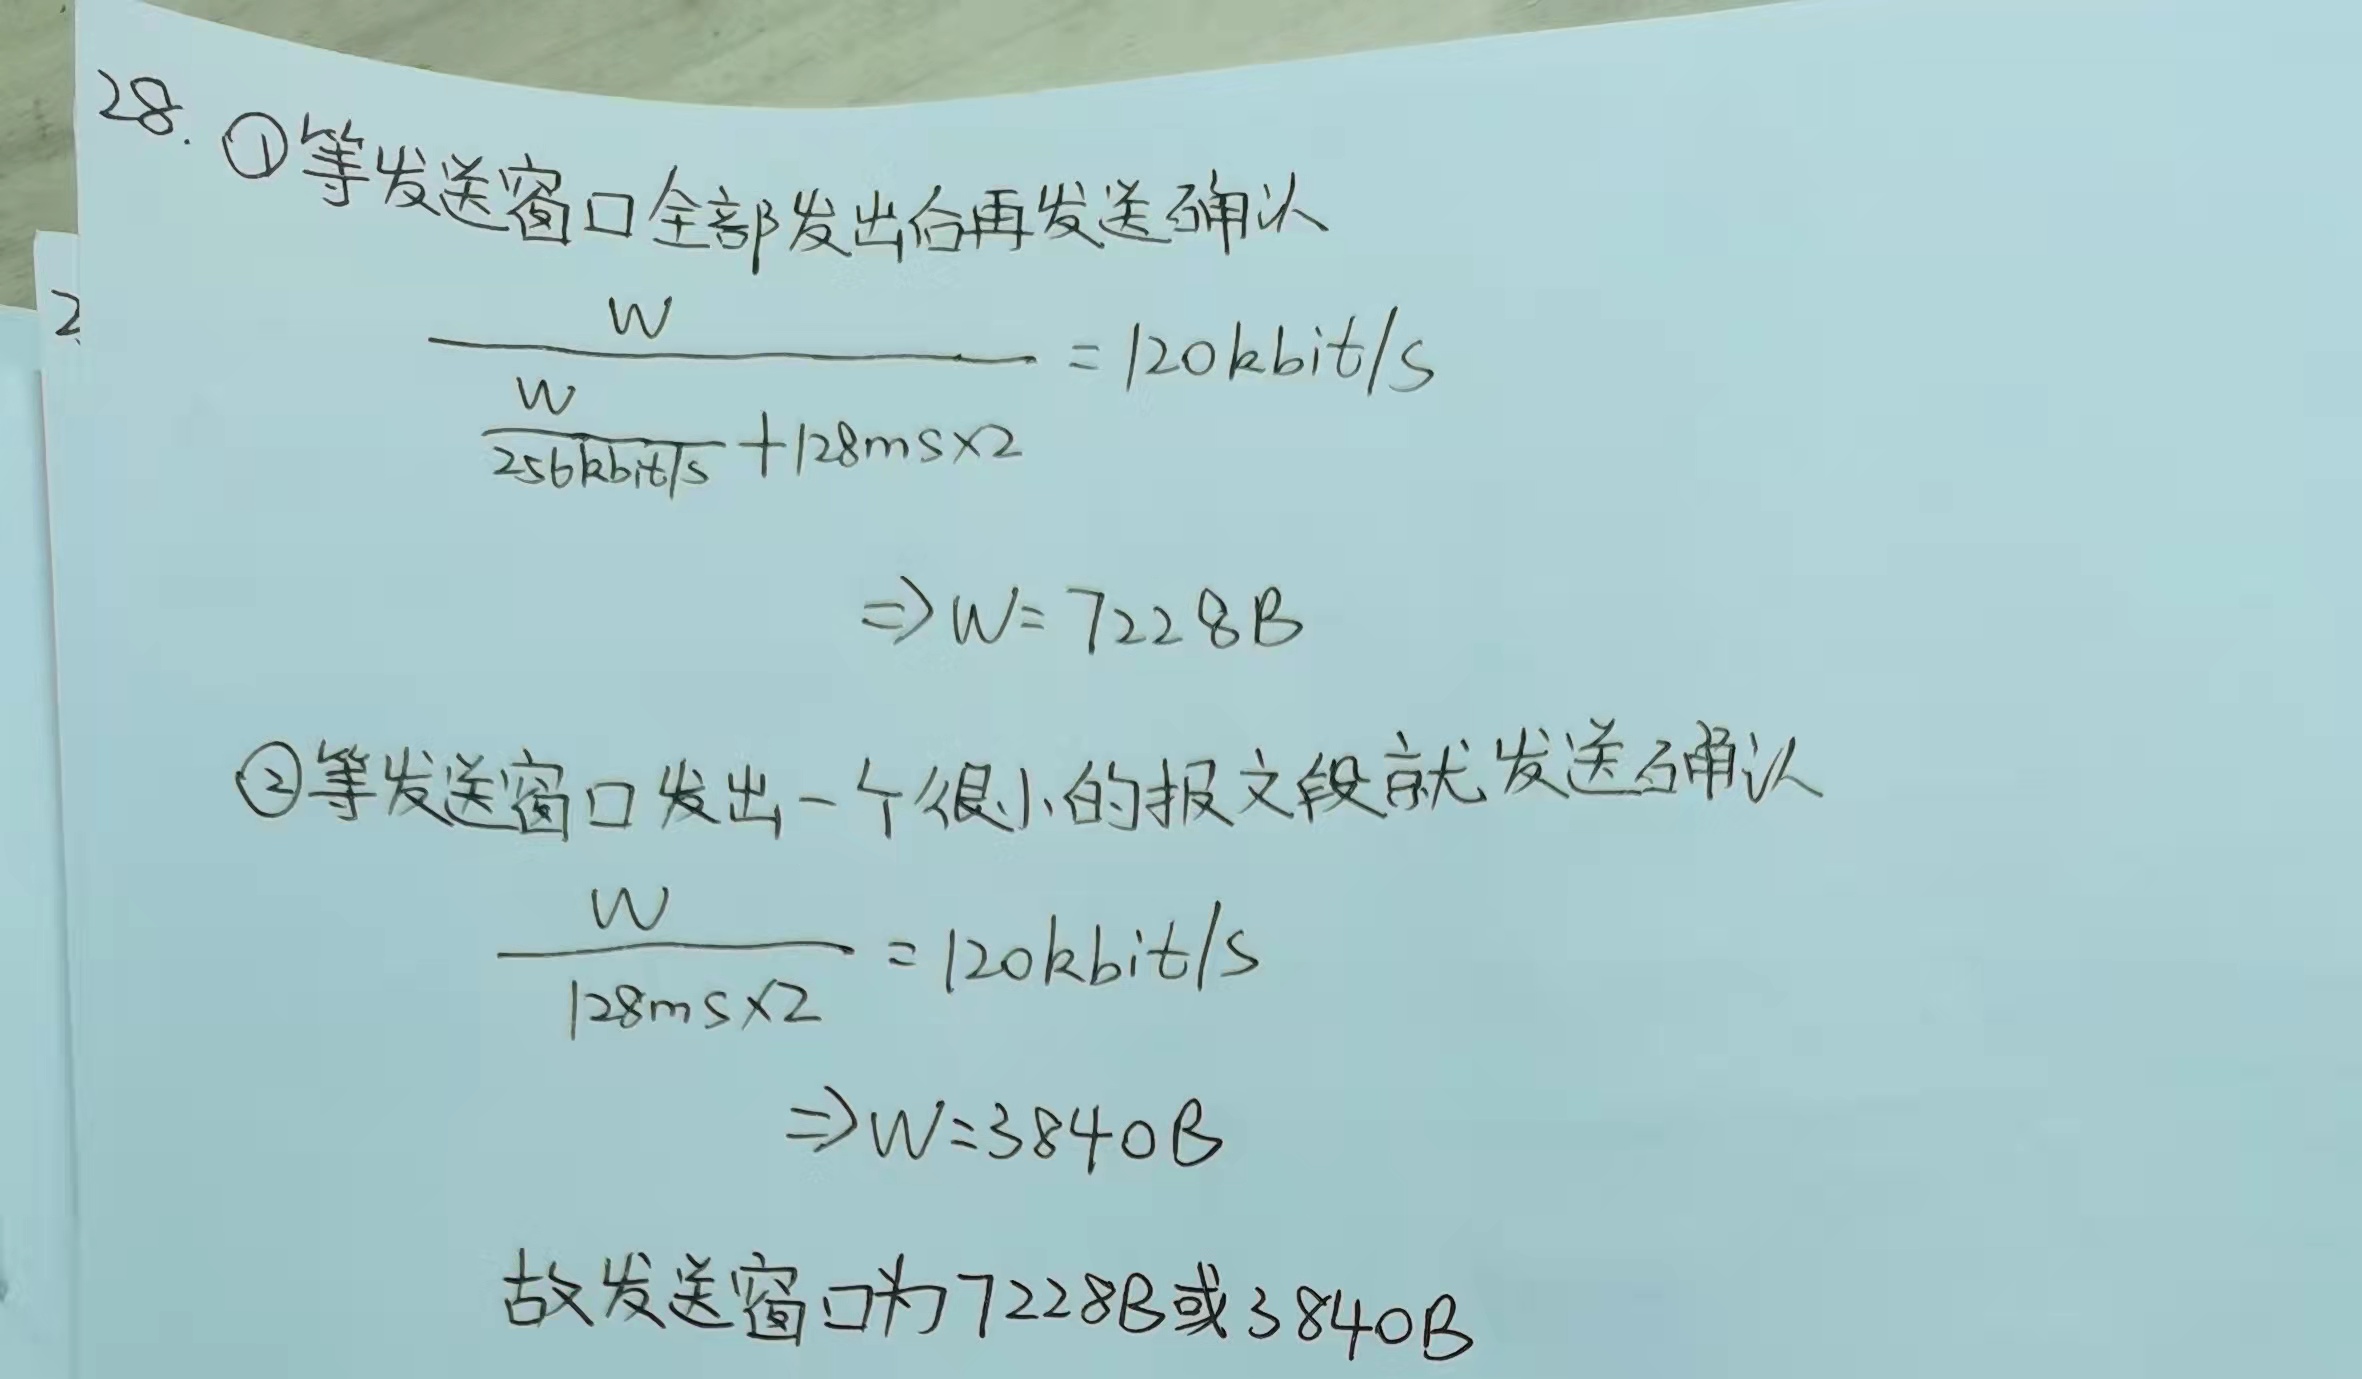 28. ①等发送窗口全部发出后再发送确认
W
W
256kbit/s + 128ms×2 = 120kbit/s
⇒W=7228B
②等发送窗口发出一个很小的报文段就发送确认
W
128ms×2 = 120kbit/s
⇒W=3840B
故发送窗口为7228B或3840B
2